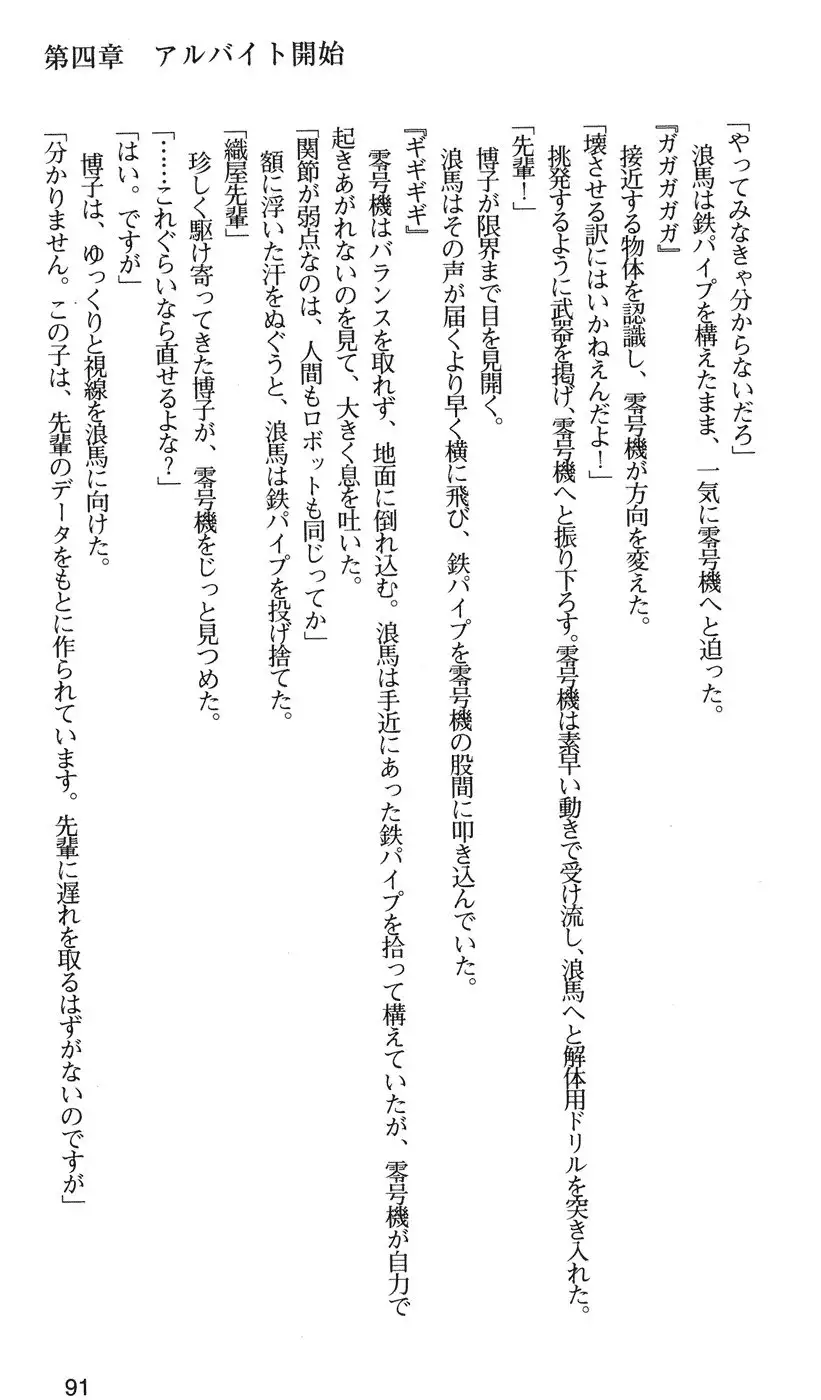 第四章　アルバイト開始
「やってみなきゃ分からないだろ」
　浪馬は鉄パイプを構えたまま、一気に零号機へと迫った。
『ガガガガガ』
　接近する物体を認識し、零号機が方向を変えた。
「壊させる訳にはいかねえんだよ！」
　挑発するように武器を掲げ、零号機へと振り下ろす。零号機は素早い動きで受け流し、浪馬へと解体用ドリルを突き入れた。
「先輩！」
　博子が限界まで目を見開く。
　浪馬はその声が届くより早く横に飛び、鉄パイプを零号機の股間に叩き込んでいた。
『ギギギギ』
　零号機はバランスを取れず、地面に倒れ込む。浪馬は手近にあった鉄パイプを拾って構えていたが、零号機が自力で
起きあがれないのを見て、大きく息を吐いた。
「関節が弱点なのは、人間もロボットも同じってか」
　額に浮いた汗をぬぐうと、浪馬は鉄パイプを投げ捨てた。
「織屋先輩」
　珍しく駆け寄ってきた博子が、零号機をじっと見つめた。
「……これぐらいなら直せるよな？」
「はい。ですが」
　博子は、ゆっくりと視線を浪馬に向けた。
「分かりません。この子は、先輩のデータをもとに作られています。先輩に遅れを取るはずがないのですが」
91